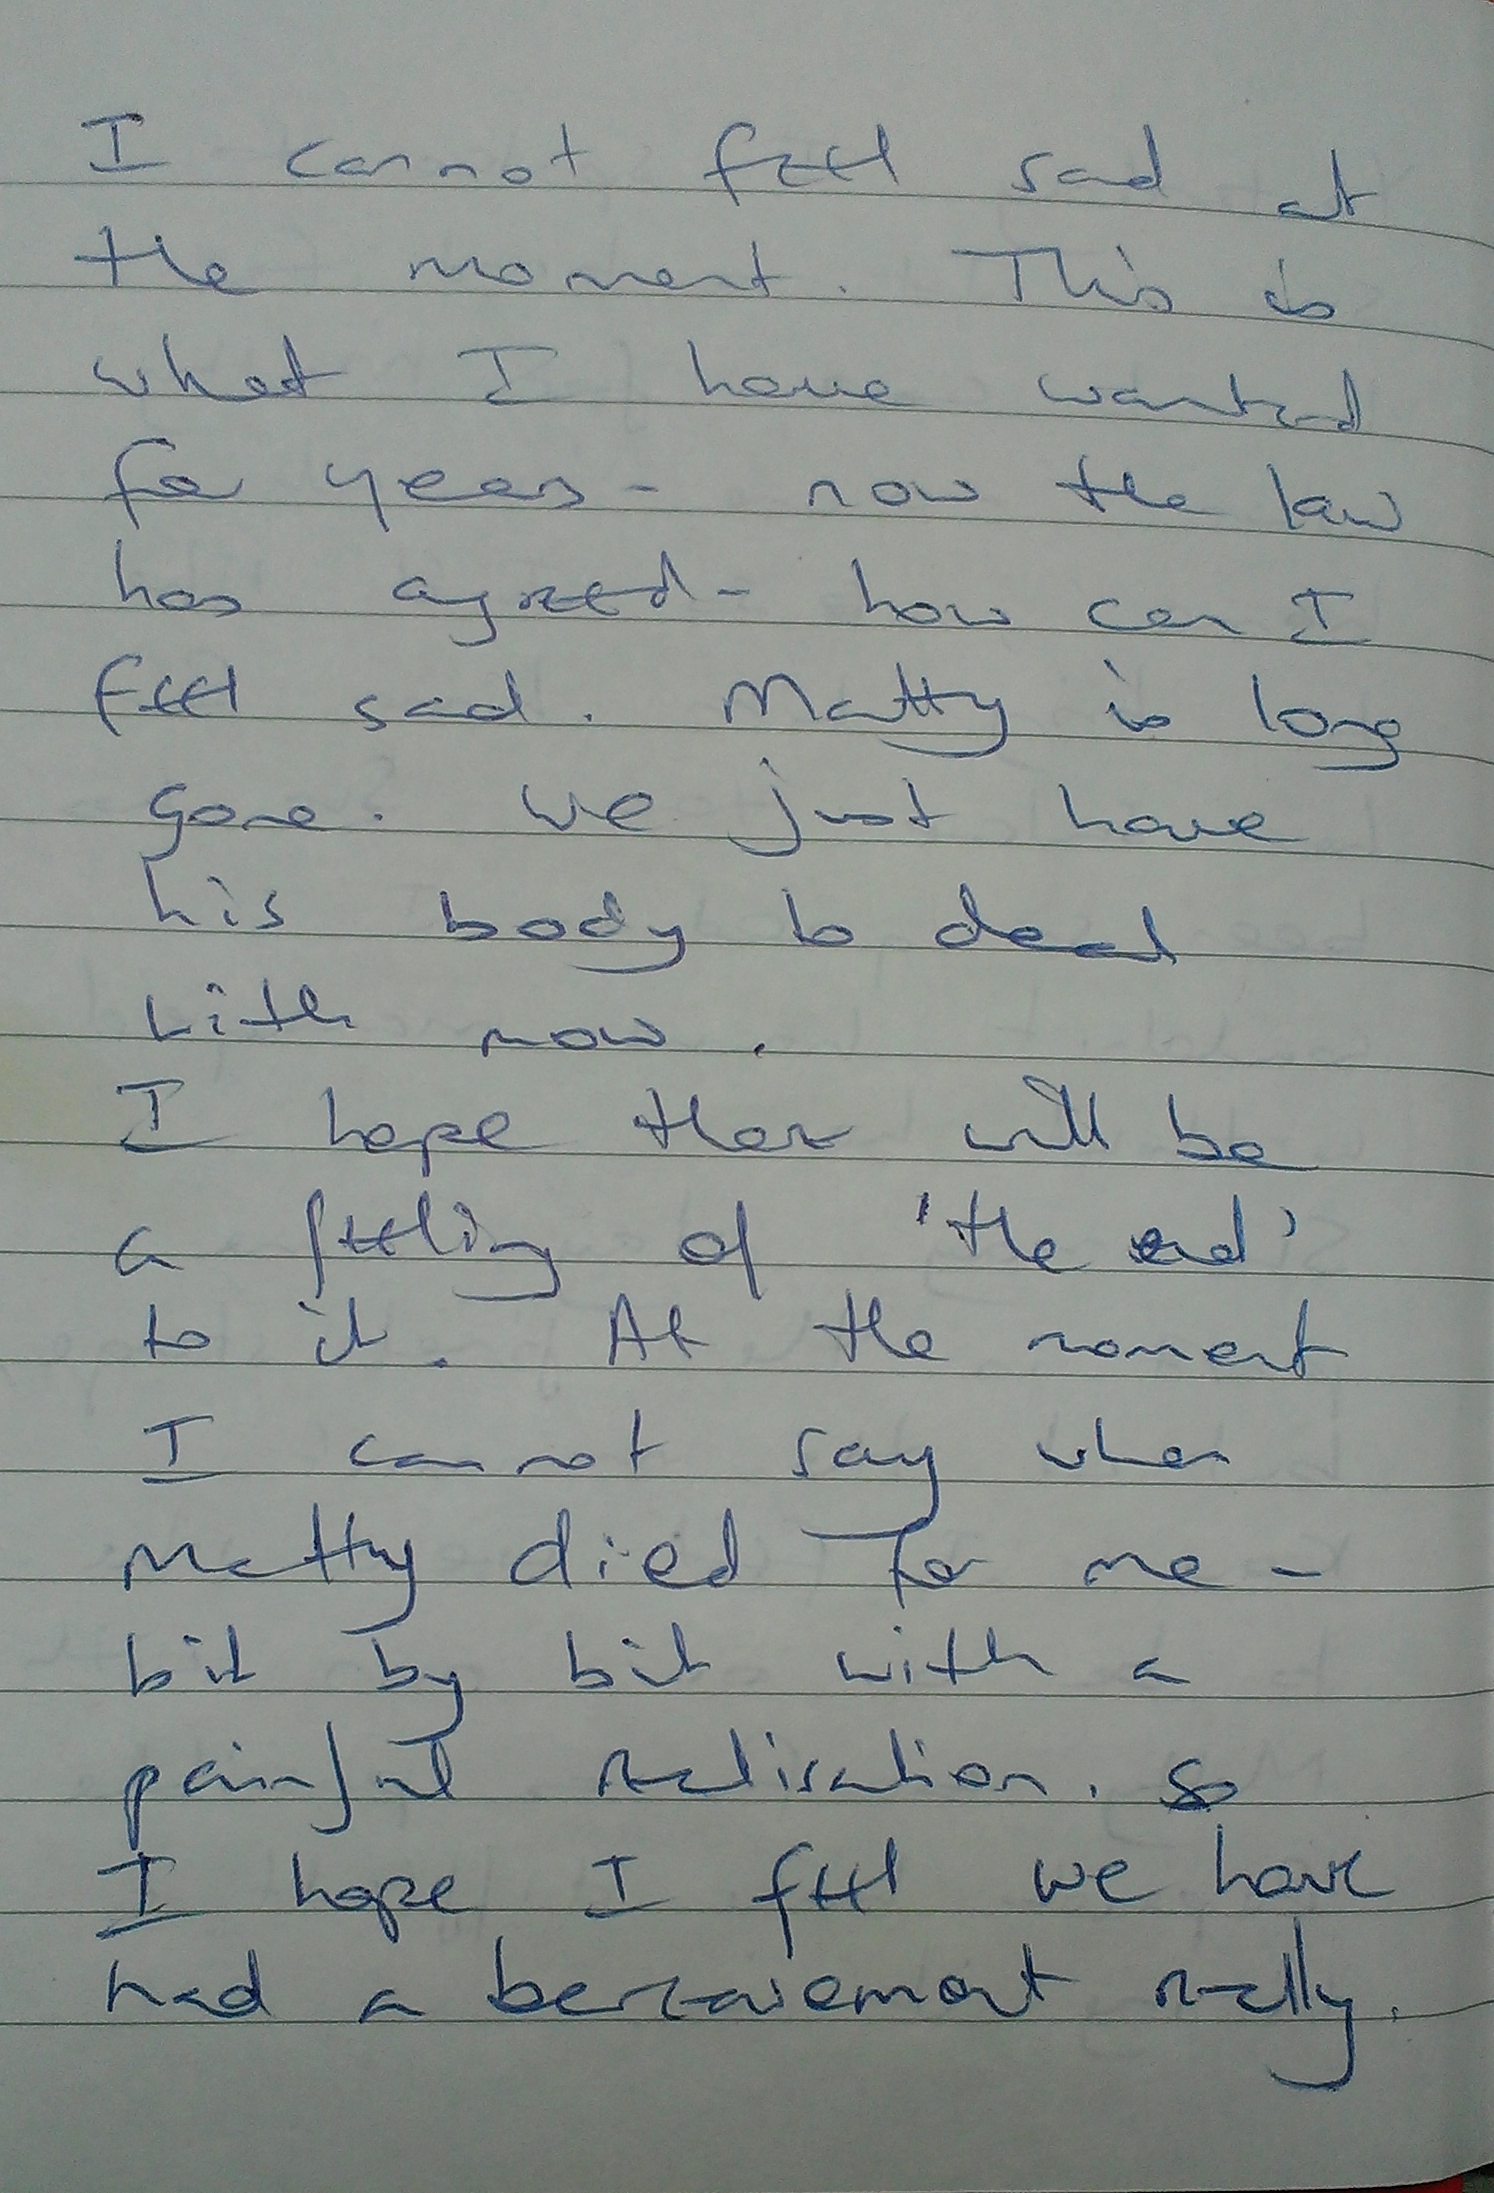 I cannot feel sad at
the moment. This is
what I have wanted
for years - now the law
has agreed - how can I
feel sad. Matty is long
gone. We just have
his body to deal
with now.
I hope there will be
a feeling of 'the end'
to it. At the moment
I cannot say when
Matty died for me -
bit by bit with a
painful realisation. So
I hope I feel we have
had a bereavement really.